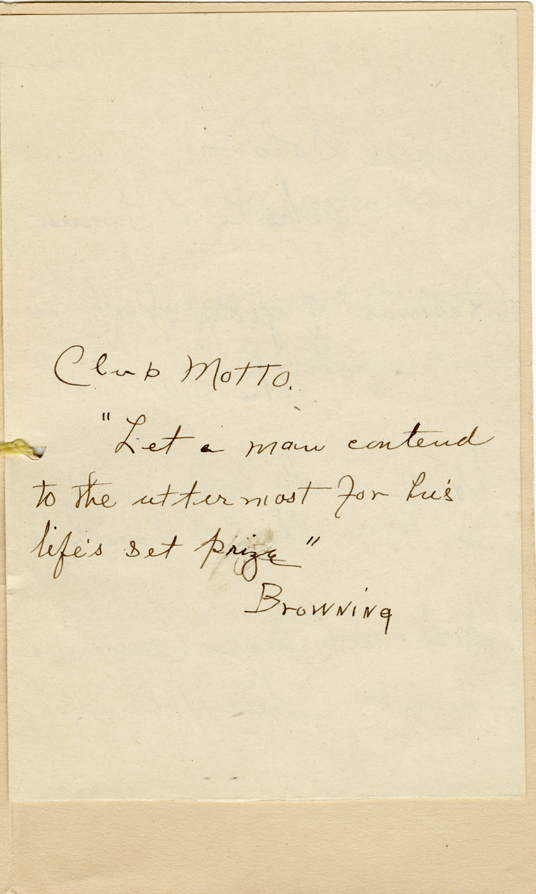 Club Motto.
"Let a man contend
to the uttermost for his
life's set prize"
Browning